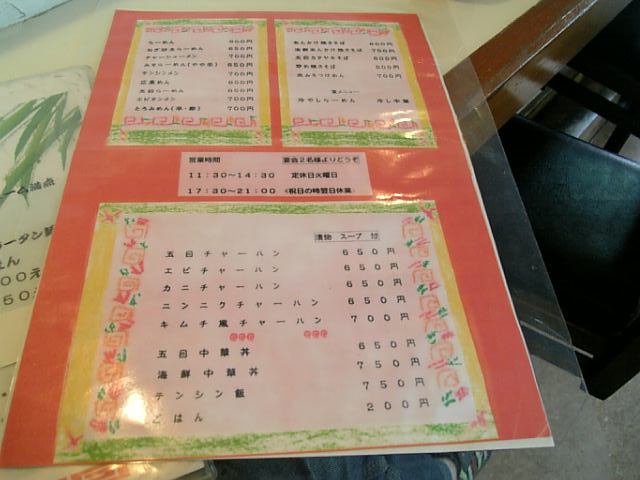 らーめん 600円
ねぎ醤油らーめん 650円
チャーシューメン 700円
みそらーめん(やや辛) 650円
テンシンメン 700円
広東めん 650円
五目らーめん 650円
エビタンメン 700円
とろみめん(辛・酢) 700円
あんかけ焼きそば 600円
海鮮あんかけ焼きそば 750円
五目カタヤキそば
夏メニュー
冷やしらーめん 冷し中華
営業時間 宴会2名様よりどうぞ
11:30~14:30 定休日火曜日
17:30~21:00 <祝日の時翌日休業>
漬物 スープ 付
五目チャーハン 650円
エビチャーハン 650円
カニチャーハン 650円
ニンニクチャーハン 650円
キムチ風チャーハン 700円
五目中華丼 650円
海鮮中華丼 750円
テンシン飯 750円
ごはん 200円